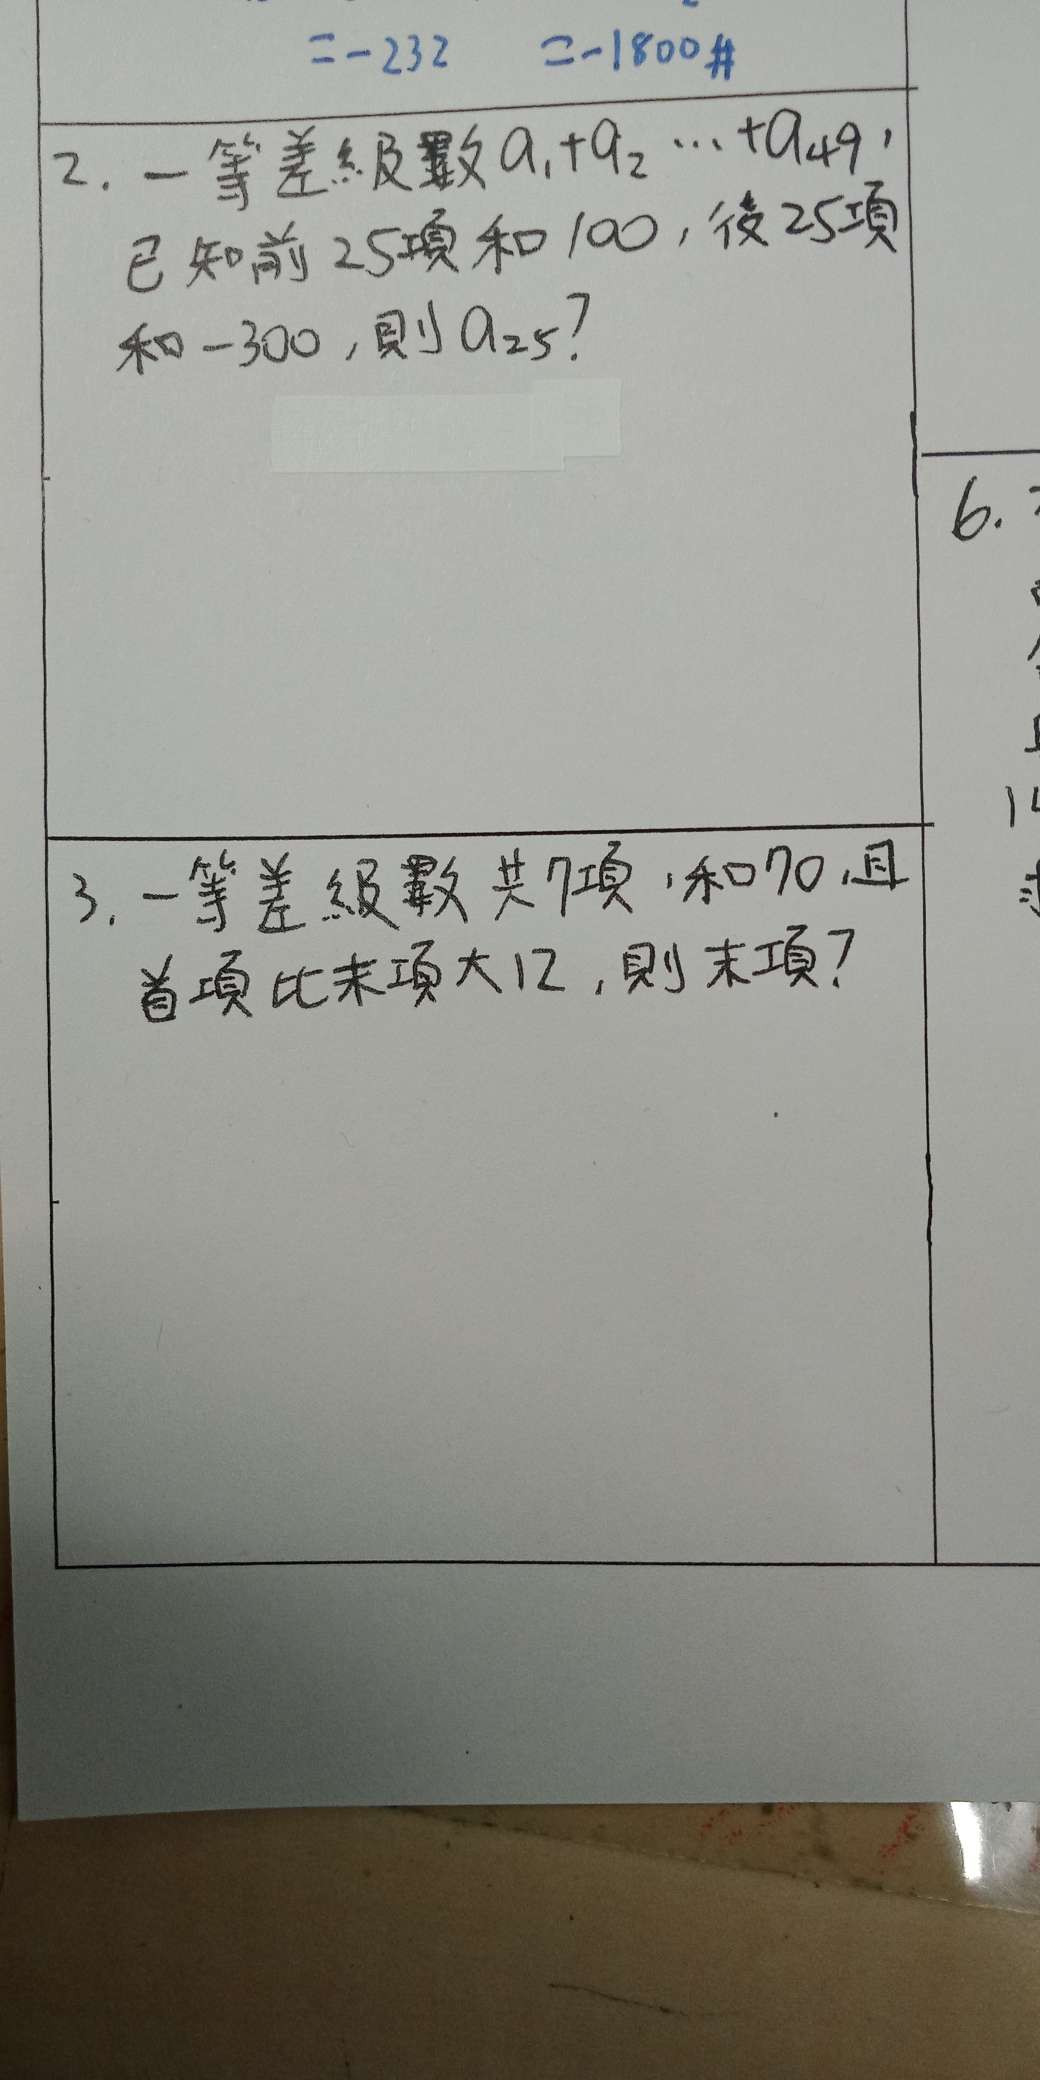 =-232 =-1800#
2. 一等差級數a₁+a₂…+a₄₉,
已知前25項和100,後25項
和-300,則a₂₅?
3. 一等差級數共7項,和70,且
首項比末項大12,則末項?
6.
14